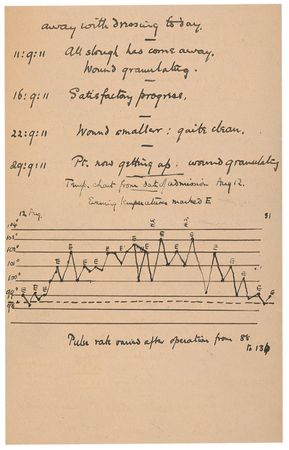 away with dressing to day.
11:9:11 All slough has come away.
Wound granulating.
16:9:11 Satisfactory progress.
22:9:11 Wound smaller: quite clean.
29:9:11 Pt. now getting up: wound granulating
Temp. chart from date of admission Aug 12.
Evening temperatures marked E
12 Aug. 31
104°
103°
102°
101°
100°
99°
98°
E E E E E E E E E E E E E E E
Pulse rate varied after operation from 88
to 136